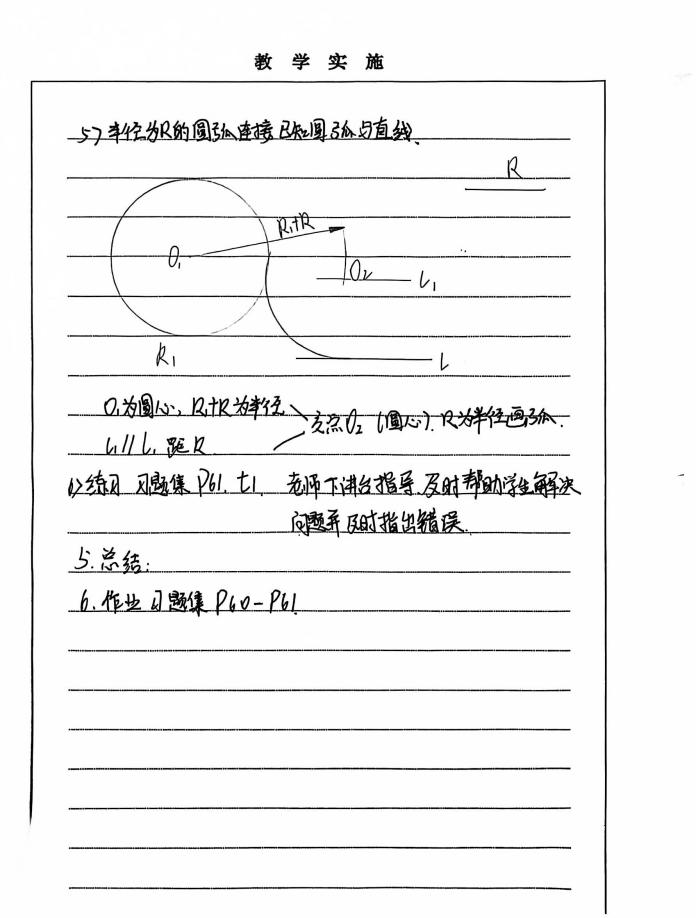 教学实施
5> 半径为R的圆弧连接已知圆弧与直线.
R
R₁+R
O₁
O₂
L₁
R₁
L
O₁为圆心, R₁+R为半径
交点O₂ (圆心). R为半径画弧.
L₁ // L, 距R
6> 练习 习题集 P61. t1. 老师下讲台指导,及时帮助学生解决
问题并及时指出错误.
5. 总结:
6. 作业 习题集 P60-P61